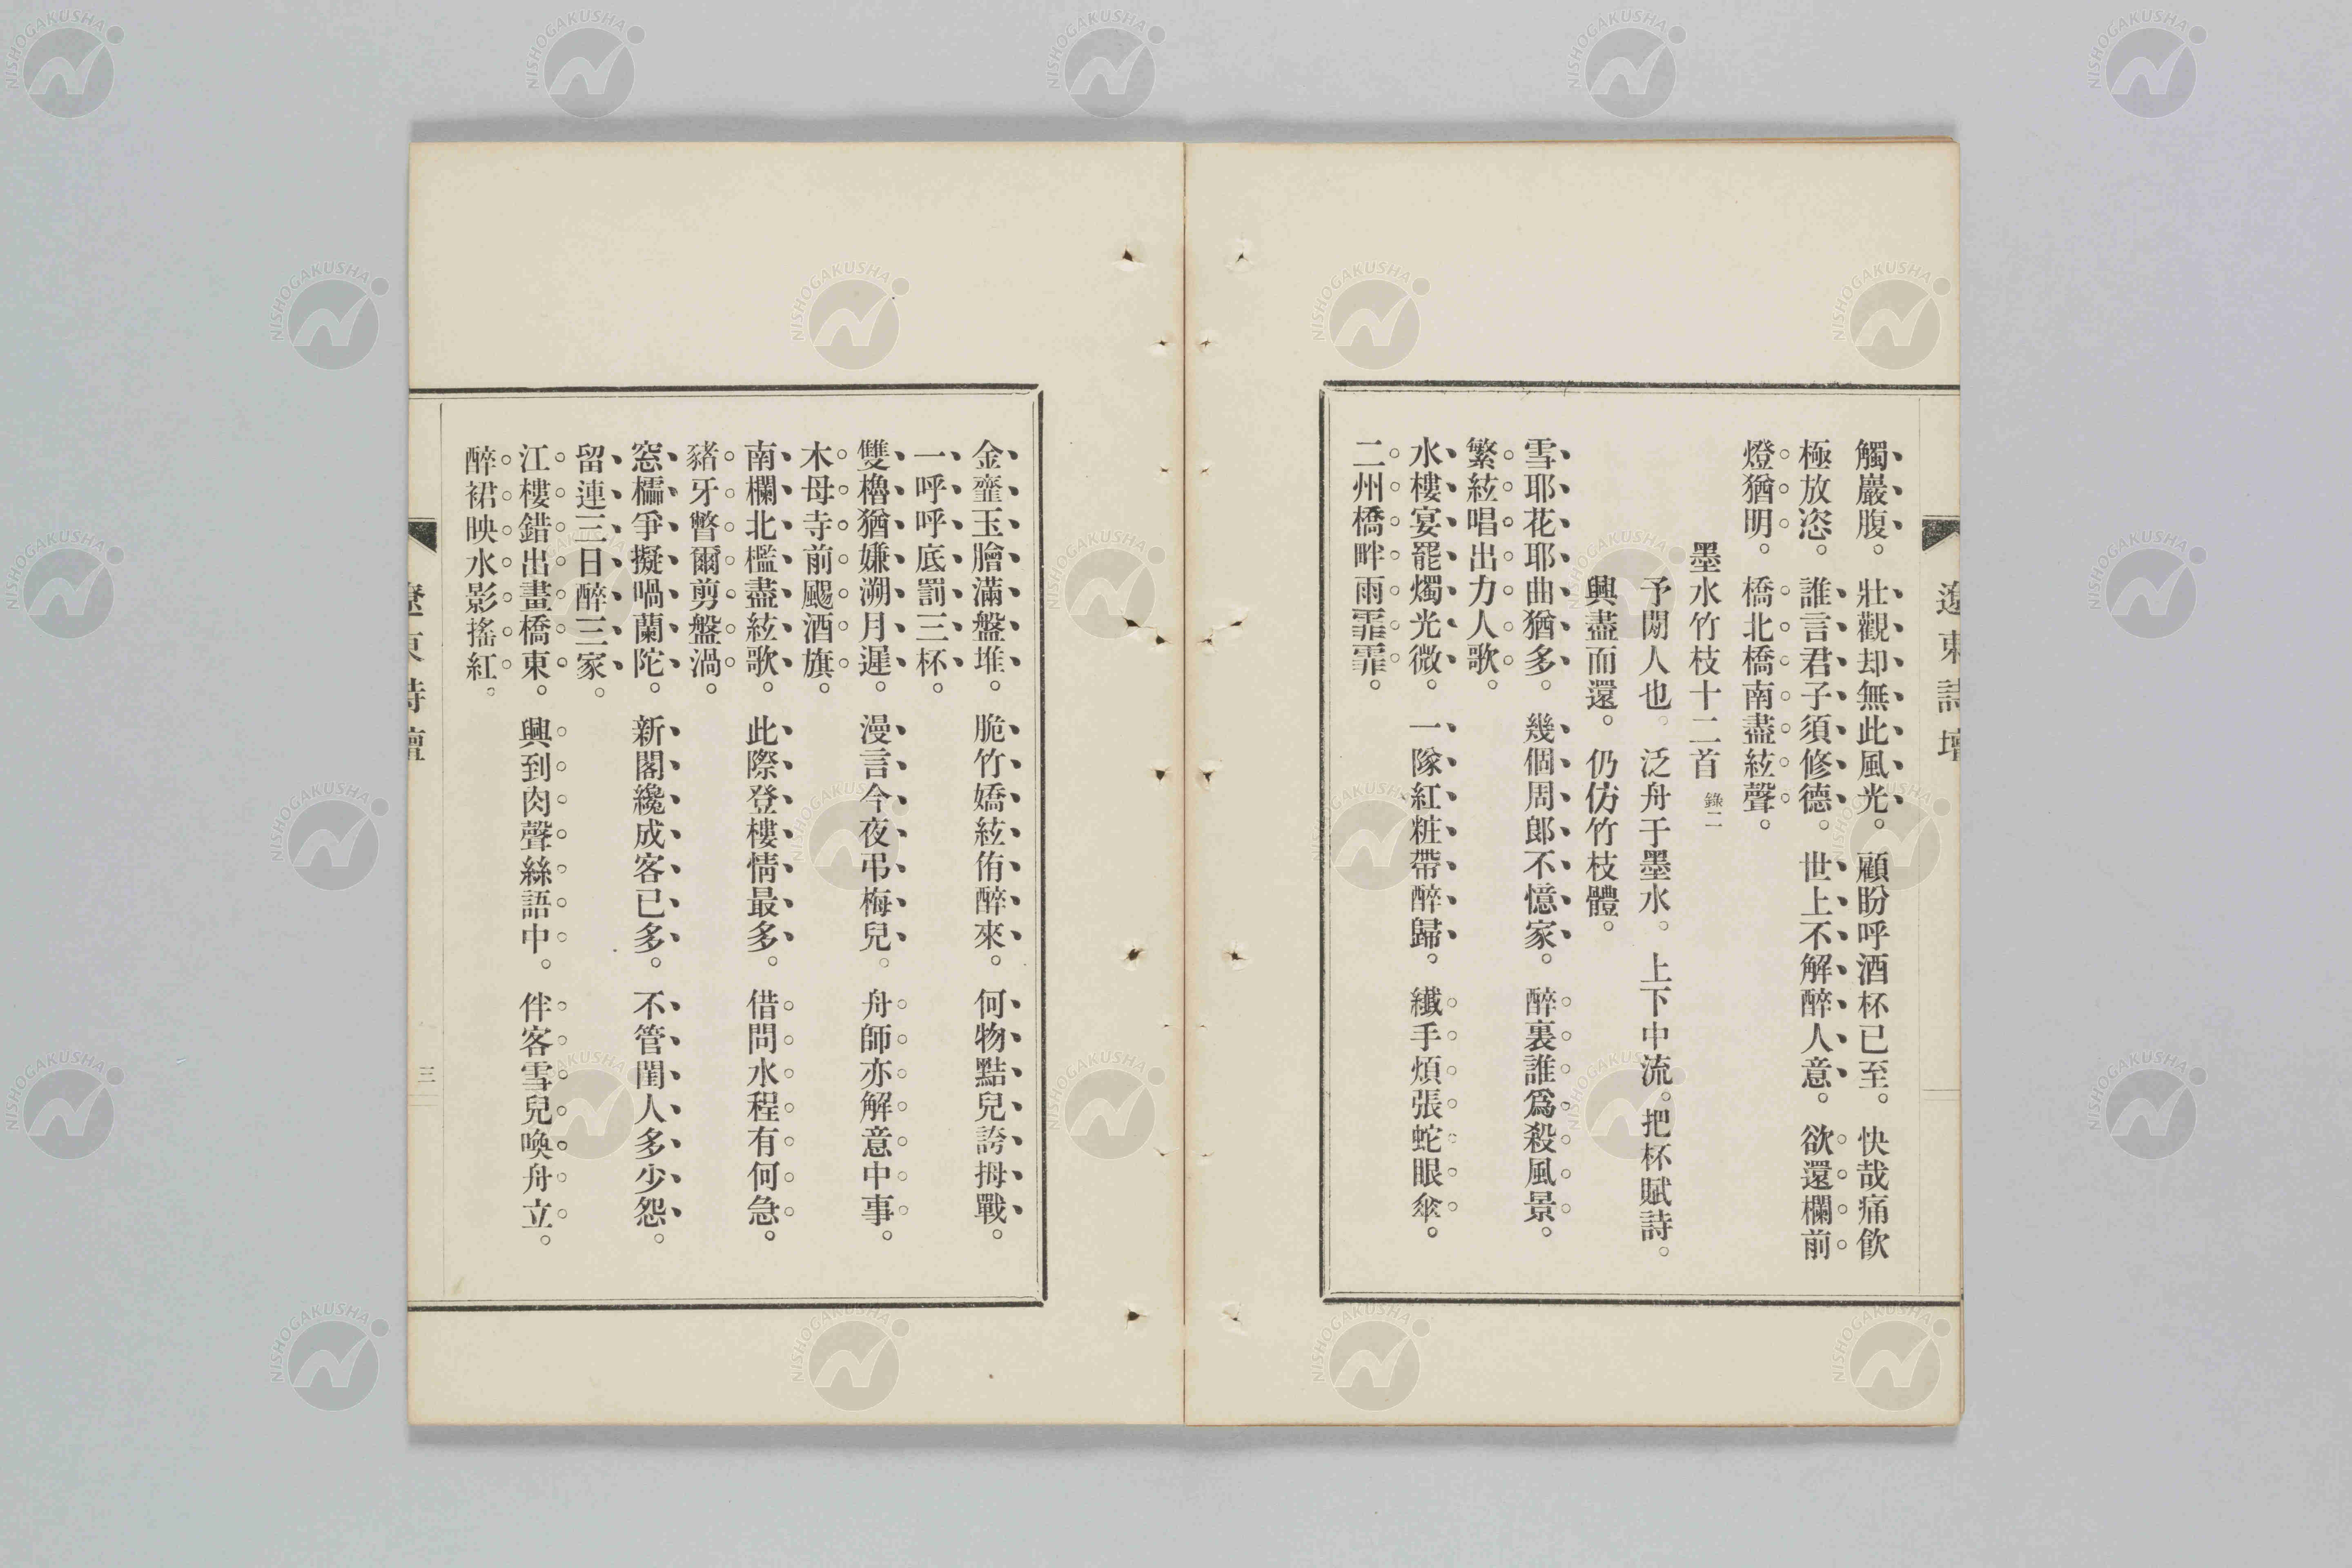 遼東詩壇
觸巖腹。壯觀却無此風光。顧盼呼酒杯已至。快哉痛飲
極放恣。誰言君子須修德。世上不解醉人意。欲還欄前
燈猶明。橋北橋南盡絃聲。
墨水竹枝十二首 錄二
予閒人也。泛舟于墨水。上下中流。把杯賦詩。
興盡而還。仍仿竹枝體。
雪耶花耶曲猶多。幾個周郎不憶家。醉裏誰爲殺風景。
繁絃唱出力人歌。
水樓宴罷燭光微。一隊紅粧帶醉歸。纖手煩張蛇眼傘。
二州橋畔雨霏霏。
金虀玉膾滿盤堆。脆竹嬌絃侑醉來。何物黠兒誇拇戰。
一呼呼底罰三杯。
雙櫓猶嫌溯月遲。漫言今夜弔梅兒。舟師亦解意中事。
木母寺前颺酒旗。
南欄北檻盡絃歌。此際登樓情最多。借問水程有何急。
豬牙瞥爾剪盤渦。
窓櫺爭擬喎蘭陀。新閣纔成客已多。不管閨人多少怨。
留連三日醉三家。
江樓錯出畫橋東。興到肉聲絲語中。伴客雪兒喚舟立。
醉裙映水影搖紅。
遼東詩壇
三
NISHOGAKUSHA